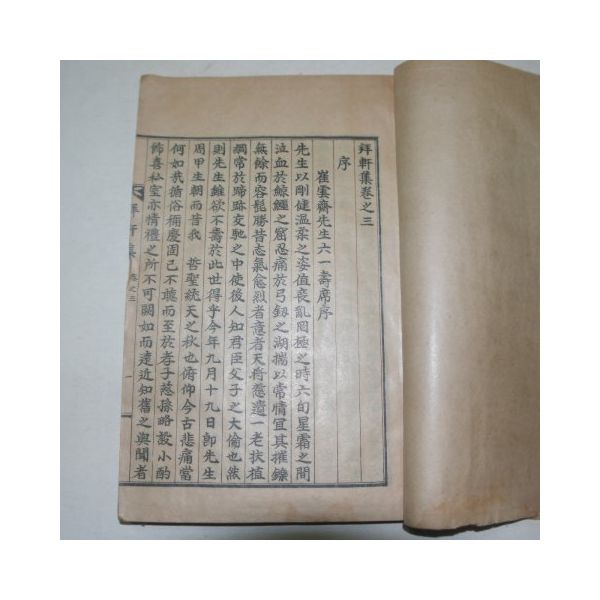 拜軒集卷之三
序
崔雲齋先生六一壽席序
先生以剛健溫柔之姿值喪亂罔極之時六旬星霜之間
泣血於鯨鱷之窟忍痛於弓釰之湖揣以常情宜其摧鑠
無餘而容髭勝昔志氣愈烈者意者天將憖遺一老扶植
綱常於蹄跡交馳之中使後人知君臣父子之大倫也然
則先生雖欲不壽於此世得乎今年九月十九日卽先生
周甲生朝而昔我 哲聖統天之秋也俯仰今古悲痛當
何如哉循俗稱慶固已不聽而至於孝子慈孫略設小酌
飾喜私室亦情禮之所不可闕如而遠近知舊之與聞者
軒集 卷之三 一